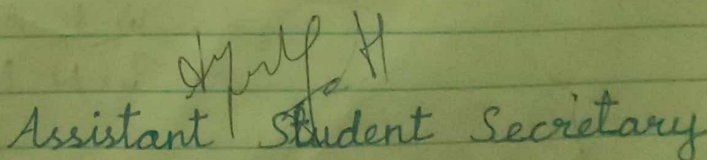 Assistant Student Secretary